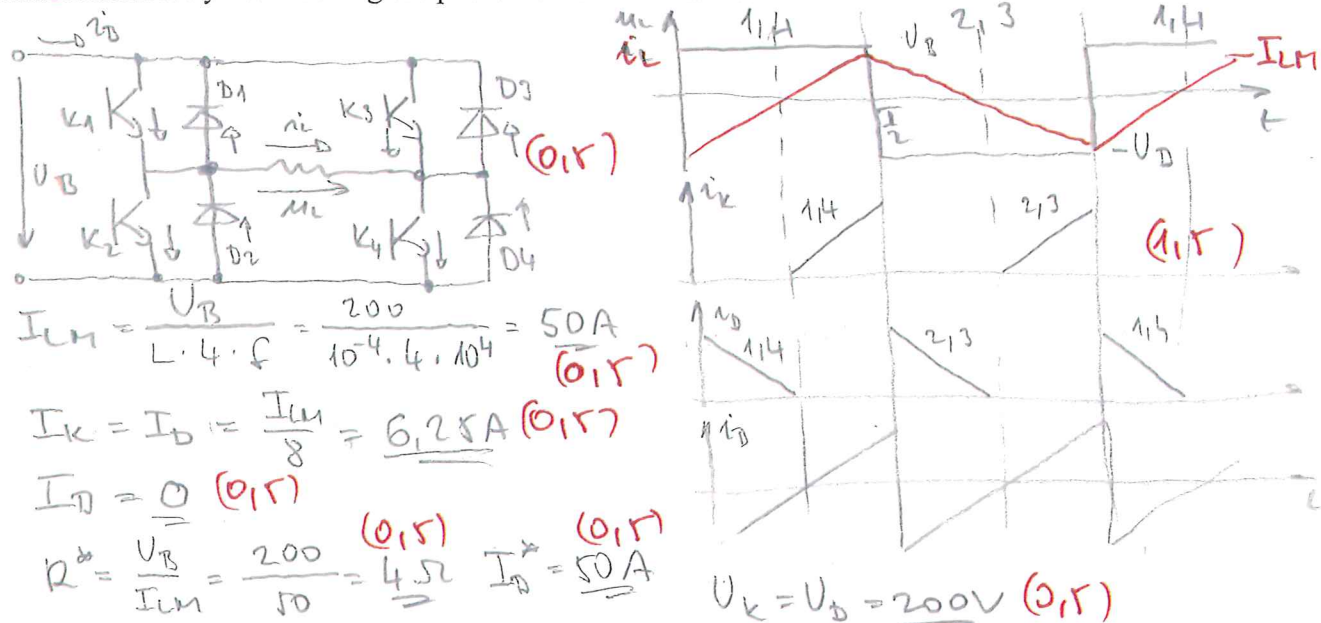 i_B
K1
D1
i_L
K3
D3
(0,5)
U_B
u_L
K2
D2
K4
D4
I_LM = U_B / (L · 4 · f) = 200 / (10^-4 · 4 · 10^4) = 50A
(0,5)
I_K = I_D = I_LM / 8 = 6,25A (0,5)
I_B = 0 (0,5)
R* = U_B / I_LM = 200 / 50 = 4Ω (0,5) I_B* = 50A (0,5)
u_L
i_L
1,4
U_B
2,3
1,4
-I_LM
T/2
t
-U_B
i_K
1,4
2,3
(1,5)
i_D
1,4
2,3
1,4
i_B
t
U_K = U_D = 200V (0,5)